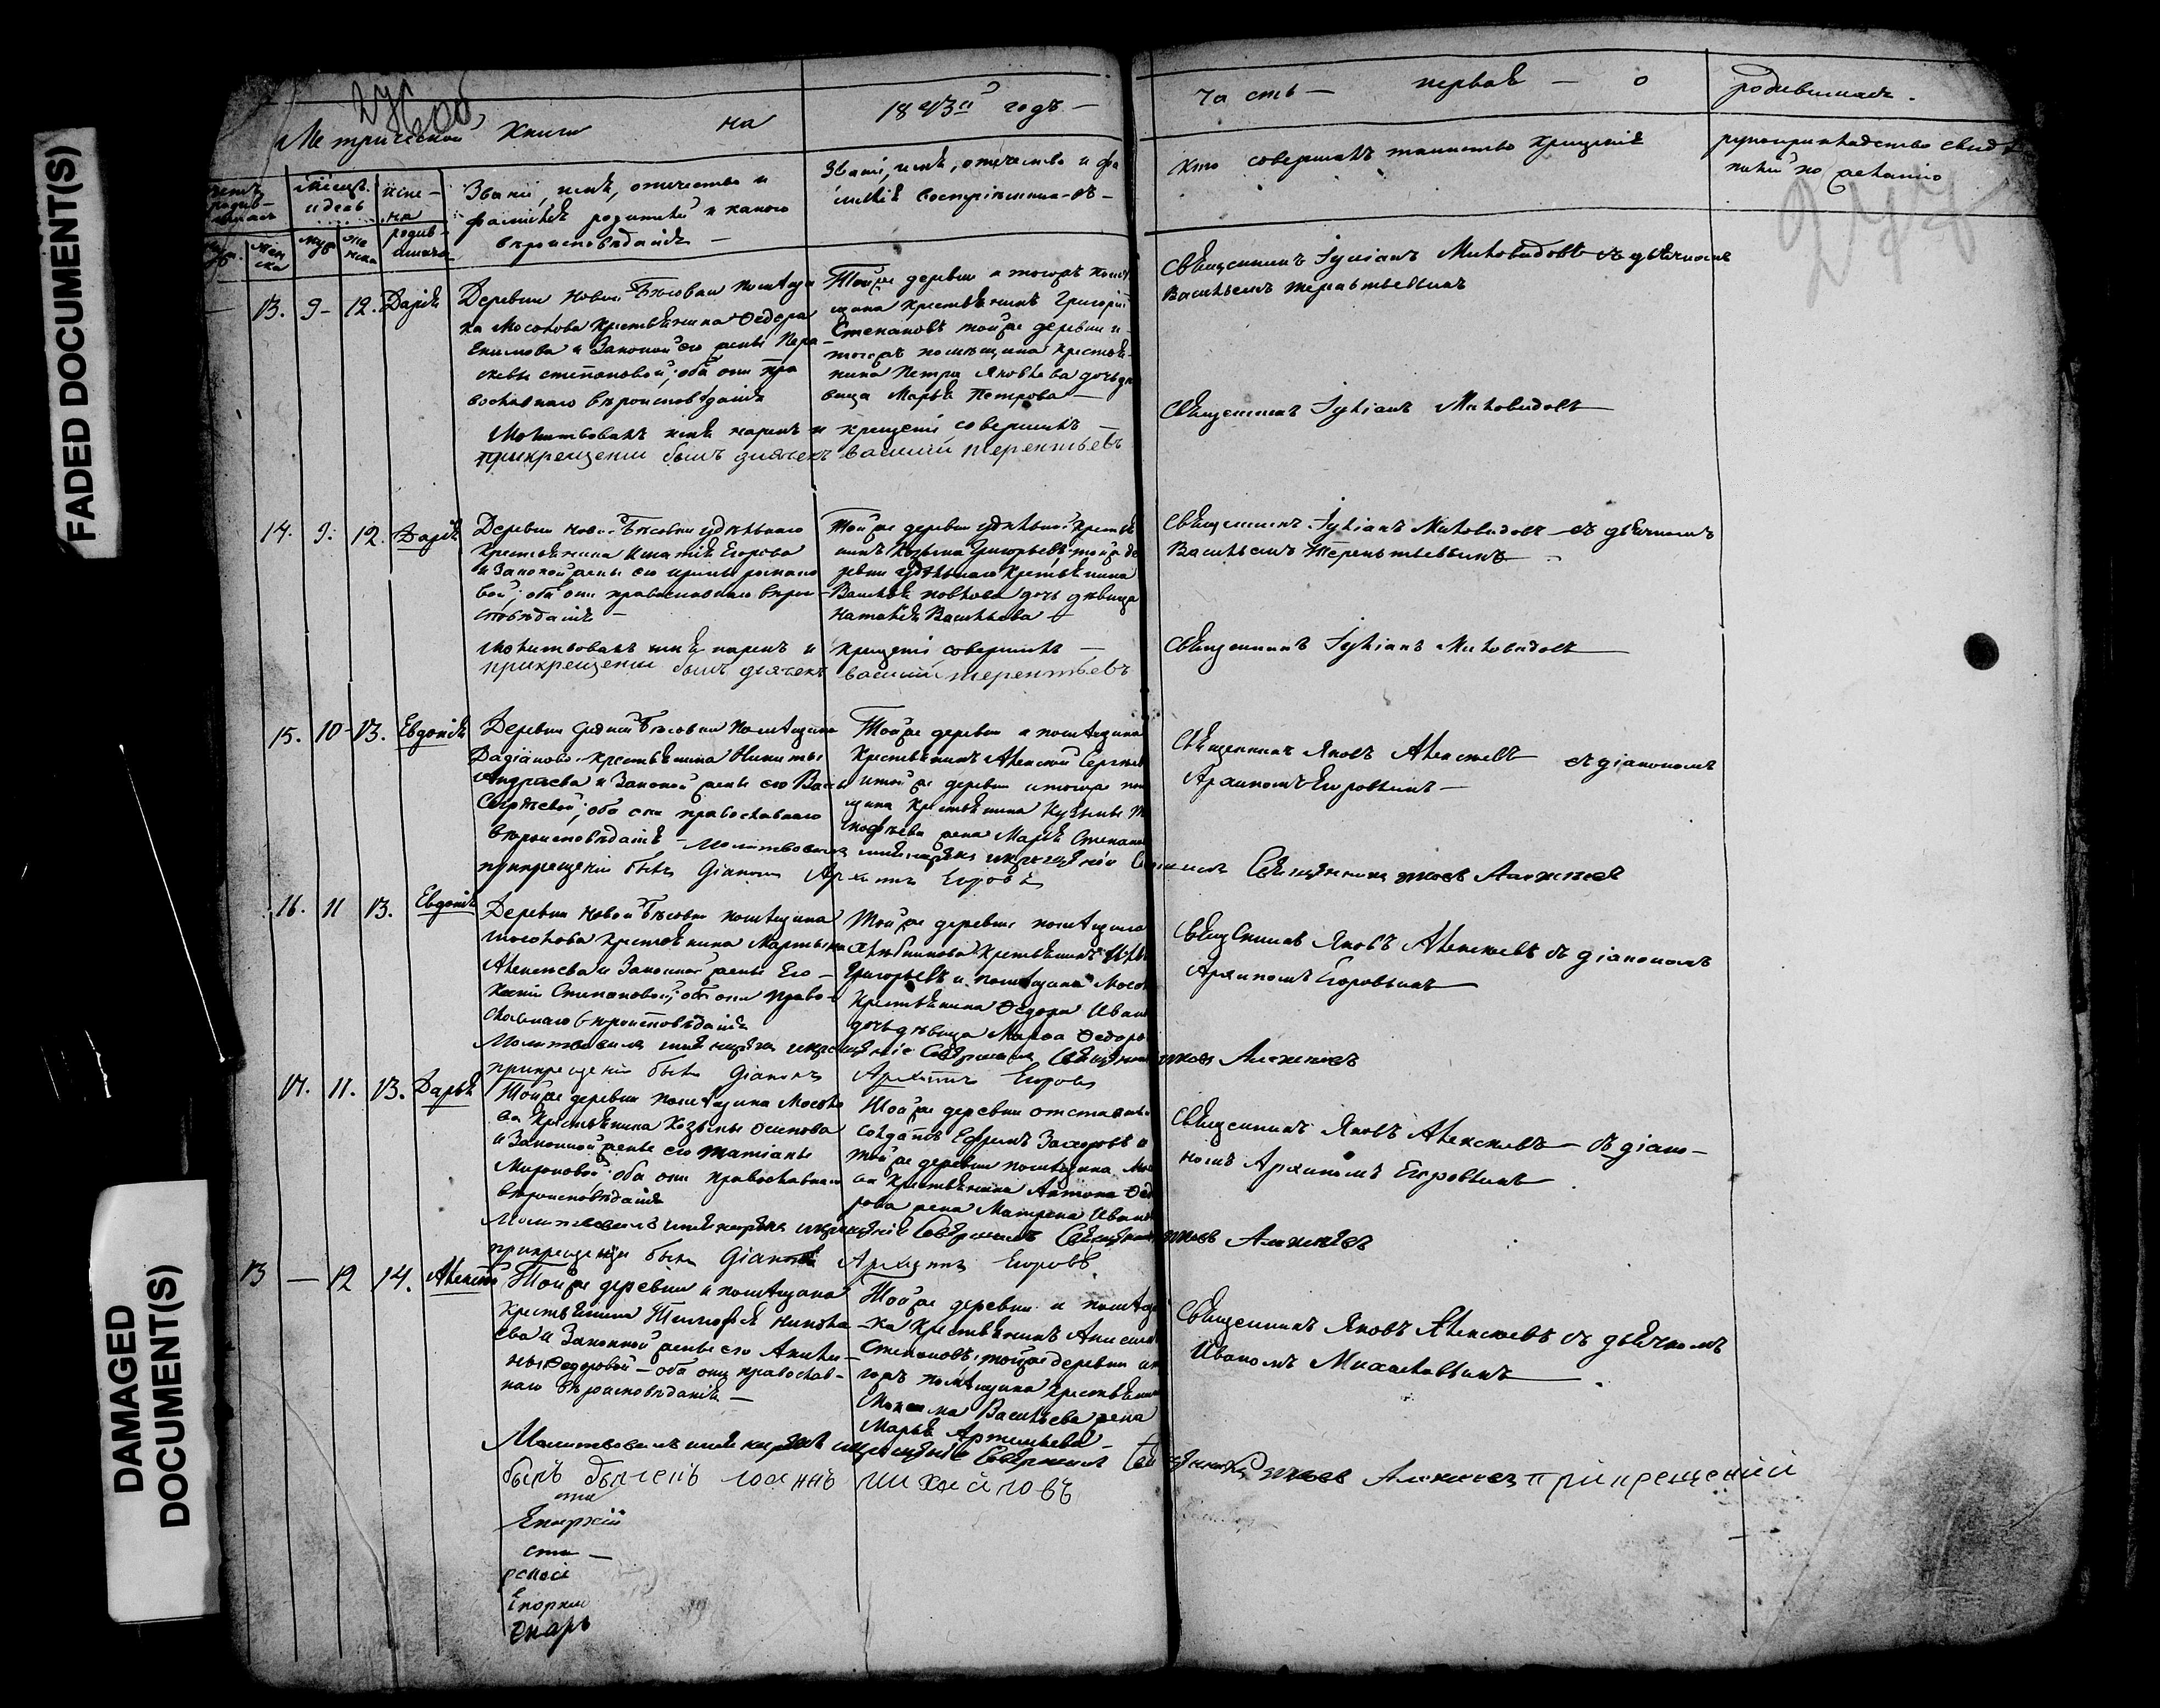 FADED DOCUMENT(S)
DAMAGED
DOCUMENT(S)
Метрической Книги на 18 годъ —
часть — первая — о родившихся.
Званіе, имя, отечество и
фамилія родителей и какого
вѣроисповѣданія —
Званіе, имя, отечество и фа
милія воспріемников —
Кто совершалъ таинство крещенія
рукоприкладство свид
телей по желанію
13. 9 – 12. Дарія
Деревни Новой Бѣсовки помѣщи
ка Мосолова крестьянина Ѳедора
Екимова и Законной его жены Пара
скевы Степановой; оба они пра
вославнаго вѣроисповѣданія
Тойже деревни и тогожъ помѣ
щика крестьянинъ Григорій
Степановъ тойже деревни и
тогожъ помѣщика крестья
нина Петра Яковлева дочь дѣ
вица Марья Петрова —
Священникъ Іуліанъ Миловидовъ съ дьячкомъ
Васильемъ Терентьевымъ
Молитвовалъ имя нарекъ и крещеніе совершилъ —
Священникъ Іуліанъ Миловидовъ —
прикрещении былъ дьячекъ василий терентьевъ
14. 9. 12. Дарія
Деревни Новой Бѣсовки удѣльнаго
крестьянина Игнатія Егорова
и Законной жены его Ирины Романо
вой; оба они православнаго вѣрои
сповѣданія —
Тойже деревни удѣльной крестья
нинъ Козьма Григорьевъ, тойже де
ревни удѣльнаго крестьянина
Василья Павлова дочь дѣвица
Наталія Васильева —
Священникъ Іуліанъ Миловидовъ — съ дьячкомъ
Васильемъ Терентьевымъ —
Молитвовалъ имя нарекъ и крещеніе совершилъ —
Священникъ Іуліанъ Миловидовъ —
прикрещении былъ дьячекъ василий терентьевъ
15. 10 – 13. Евдокія
Деревни Средней Бѣсовки помѣщика
Дадіанова крестьянина Никиты
Андреева и Законной жены его Вас
Сергѣевой; оба они православнаго
вѣроисповѣданія —
Тойже деревни и помѣщика
крестьянинъ Алексей Сергѣев
и тойже деревни и тогоже пом
щика крестьянина Кузьмы Ти
мофѣева жена Марья Степан
Священникъ Яковъ Алексѣевъ съ діакономъ
Архипомъ Егоровымъ —
Молитвовалъ имя нарекъ и крещеніе Совершилъ Священникъ Яковъ Алексѣев
прикрещеніи былъ Діаконъ Архипъ Егоровъ
16. 11 13. Евдокія
Деревни Новой Бѣсовки помѣщика
Мосолова крестьянина Мартына
Алексеева и Законной жены Его —
Ксеніи Степановой; оба они право
славнаго вѣроисповѣданія
Тойже деревни помѣщика
крестьянинъ
Григорьевъ и помѣщика Мосол
крестьянина Ѳедора Иван
дочь дѣвица Марѳа Ѳедоро
Священникъ Яковъ Алексѣевъ съ діакономъ
Архипомъ Егоровымъ —
Молитвовалъ имя нарекъ и крещеніе Совершилъ Священникъ Яковъ Алексѣевъ
прикрещеніи былъ Діаконъ Архипъ Егоровъ
17. 11. 13. Дарья
Тойже деревни помѣщика Мосоло
ва крестьянина Козьмы Осипова
и Законной жены его Татіаны
Мироновой; оба они православнаго
вѣроисповѣданія
Тойже деревни отставной
Солдатъ Ефремъ Захаровъ и
тойже деревни помѣщика Мосо
ва крестьянина Антона Ѳед
рова жена Матрена Иван
Священникъ Яковъ Алексѣевъ — съ діако —
номъ Архипомъ Егоровымъ
Молитвовалъ имя нарекъ и крещеніе Совершилъ Священникъ Яковъ Алексѣевъ
прикрещеніи былъ Діаконъ Архипъ Егоровъ
13 — 12 14. Алексѣй
Тойже деревни и помѣщика
крестьянина Тимофея Никола
ева и Законной жены его Акили
ны Ѳедоровой — оба они православ-
наго вѣроисповѣданія —
Тойже деревни и помѣщи
ка крестьянинъ Анисим
Степановъ, тойже деревни и т
гожъ помѣщика крестьянин
Максима Васильева жена
Марья Артемьева —
Священникъ Яковъ Алексѣевъ съ дьячкомъ
Иваномъ Михайловымъ —
Молитвовалъ имя нарекъ и крещеніе Совершилъ Священникъ Яковъ Алексѣевъ прикрещеніи
былъ дьячекъ Іоаннъ михайловъ